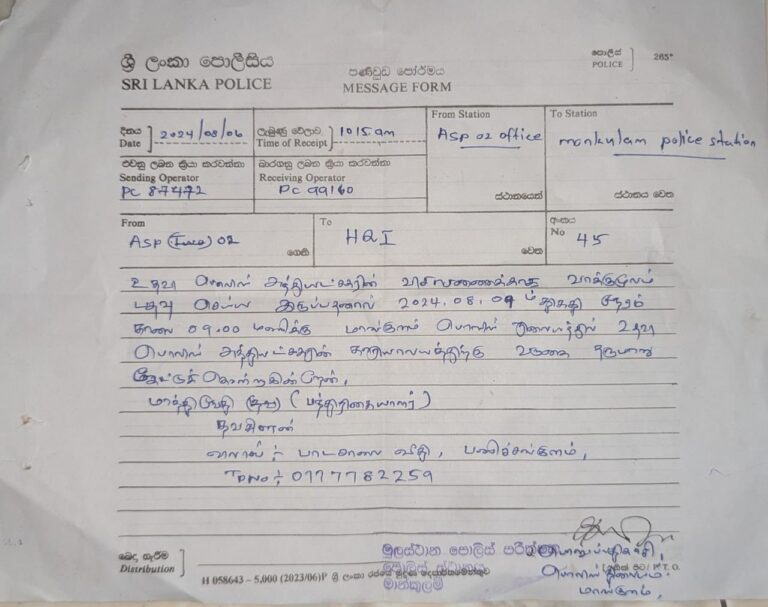 ශ්‍රී ලංකා පොලීසිය
SRI LANKA POLICE
පණිවුඩ පෝර්මය
MESSAGE FORM
පොලිස්
POLICE
265
දිනය
Date
2024/08/06
ලැබුණු වේලාව
Time of Receipt
1015 am
From Station
ASP 02 office
ස්ථානයෙන්
To Station
mankulam police station
ස්ථානය වෙත
එවනු ලබන ක්‍රියා කරවන්නා
Sending Operator
PC 87472
බාරගනු ලබන ක්‍රියා කරවන්නා
Receiving Operator
PC 99160
From
ASP 02
ගෙන්
To
HQI
වෙත
අංකය
No
45
உதவி பொலிஸ் அத்தியட்சகரின் விசாரணைக்காக வாக்குமூலம்
பதிவு செய்ய இருப்பதனால் 2024.08.09ம் திகதி நேரம்
காலை 09.00 மணிக்கு மாங்குளம் பொலிஸ் நிலையத்தில் உதவி
பொலிஸ் அத்தியட்சகரின் காரியாலயத்திற்கு வருகை தருமாறு
கேட்டுக் கொள்கின்றேன்,
தவசீலன்
விலாசம் :- பாடசாலை வீதி, பனிச்சங்குளம்,
TPNo :- 0777782259
බෙදා හැරීම
Distribution
H 058643 - 5,000 (2023/06)P ශ්‍රී ලංකා රජයේ මුද්‍රණ දෙපාර්තමේන්තුව
මූලස්ථාන පොලිස් පරීක්ෂක
පොලිස් ස්ථානය
මාන්කුලම්
பொறுப்பதிகாரி,
பொலிஸ் நிலையம்
மாங்குளம்,
P. T. O.